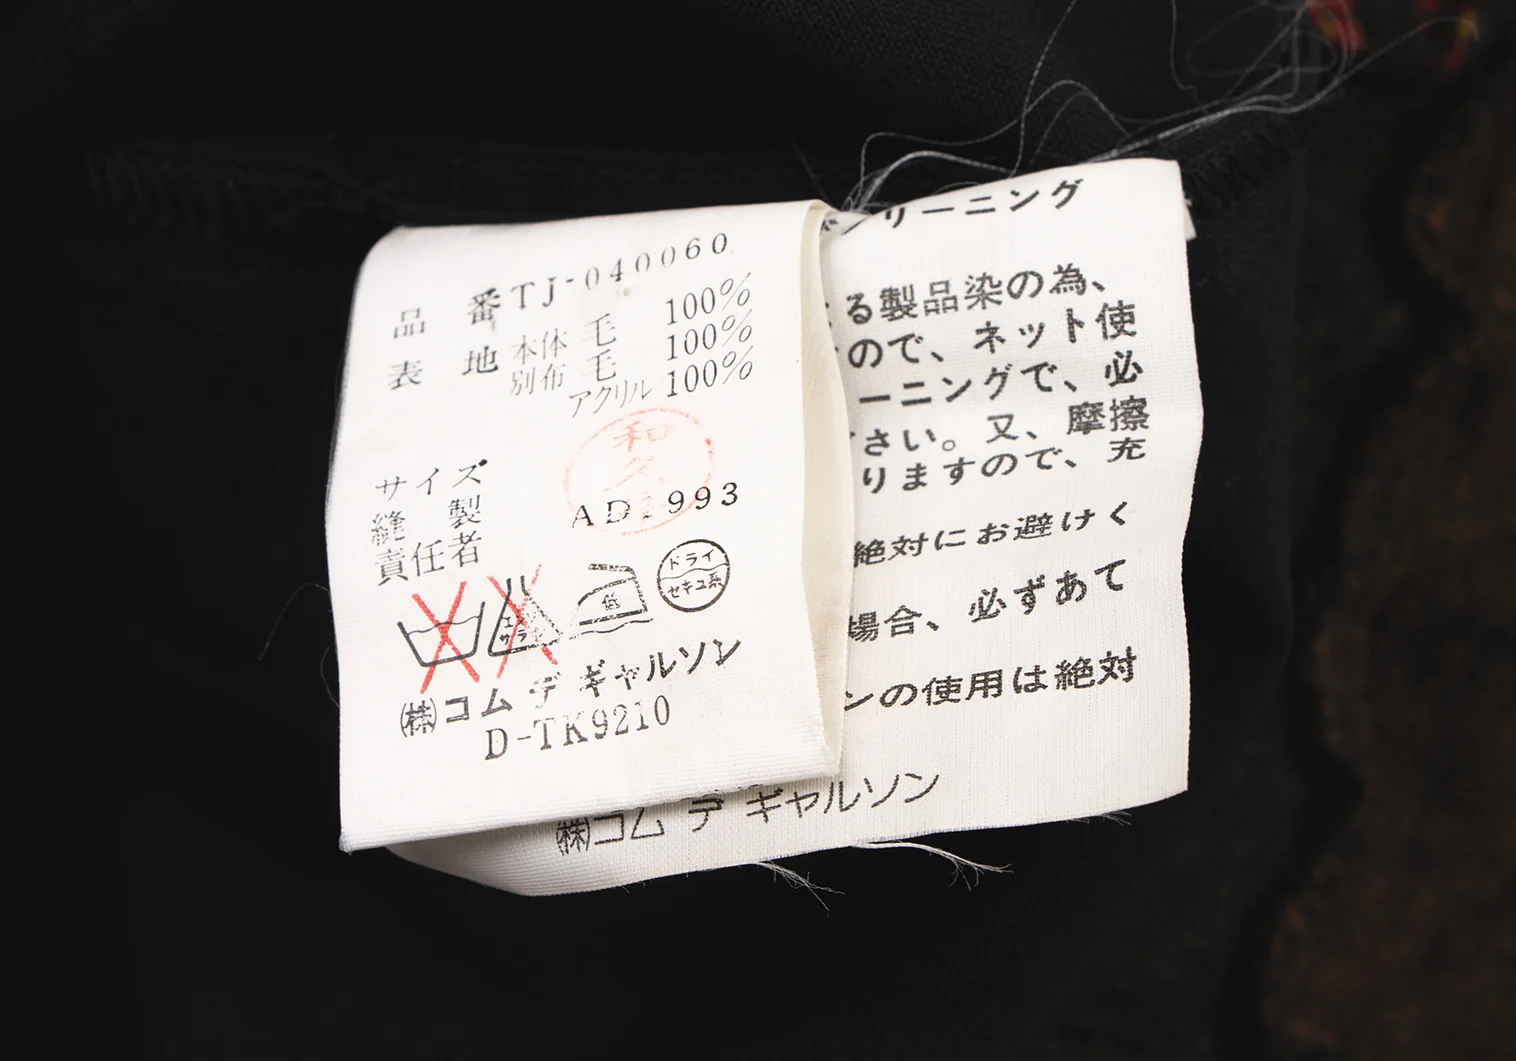 品 番 TJ-040060
表 地 本体 毛 100%
別布 毛 100%
アクリル 100%
和
久
サイズ
縫製
責任者
AD1993
エンソ
サラシ
低
ドライ
セキユ系
㈱コム デ ギャルソン
D-TK9210
リーニング
る製品染の為、
ので、ネット使
ーニングで、必
さい。又、摩擦
りますので、充
絶対にお避けく
場合、必ずあて
ンの使用は絶対
㈱コム デ ギャルソン